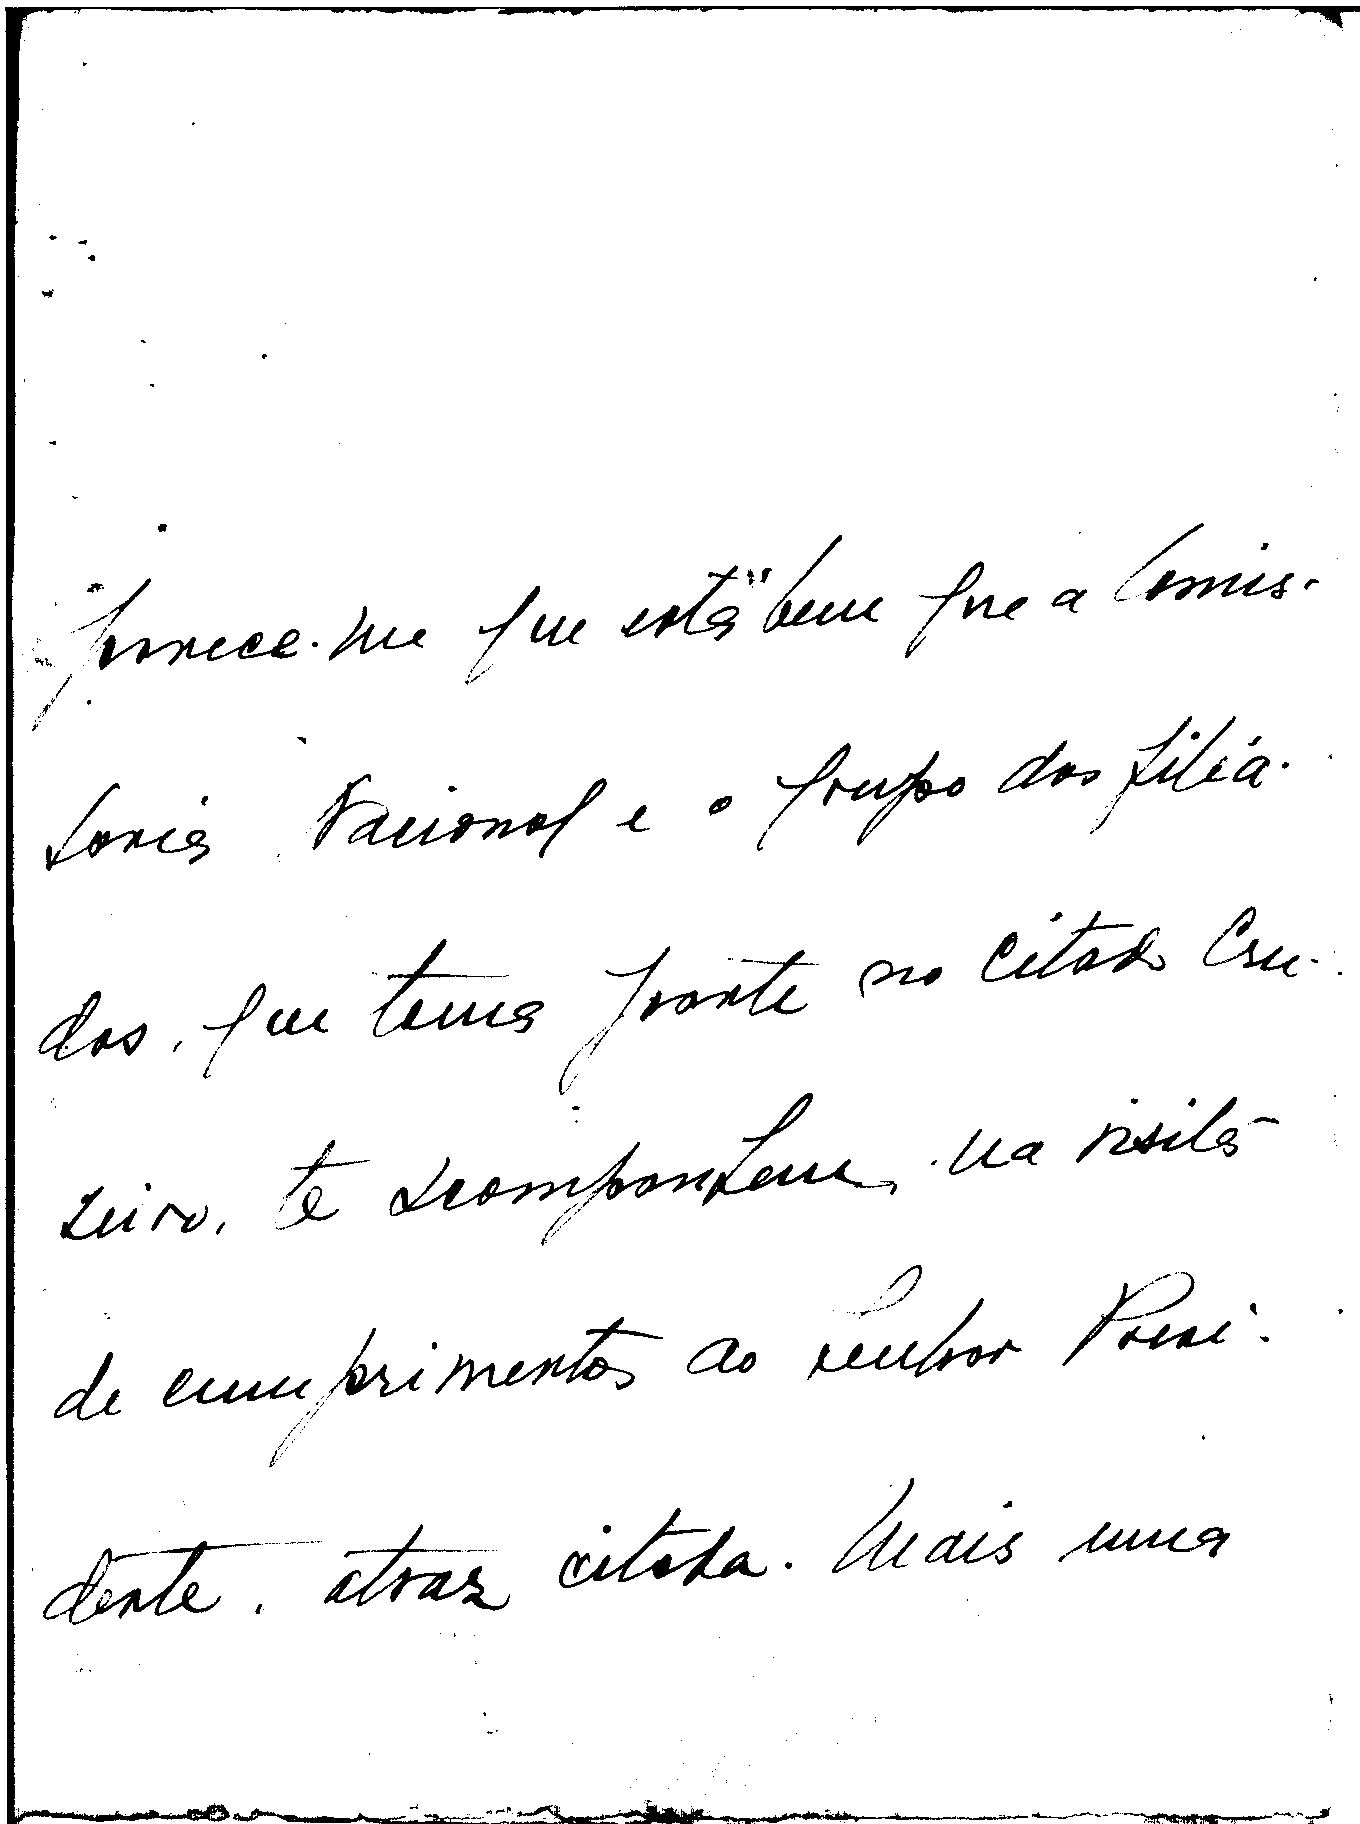 parece-me que está bem que a Comis-
saria Nacional e o Grupo dos filia-
dos, que toma parte no citado Cru-
zeiro, te acompanhem, na visita
de cumprimentos ao Senhor Presi-
dente, atraz citada. Mais uma